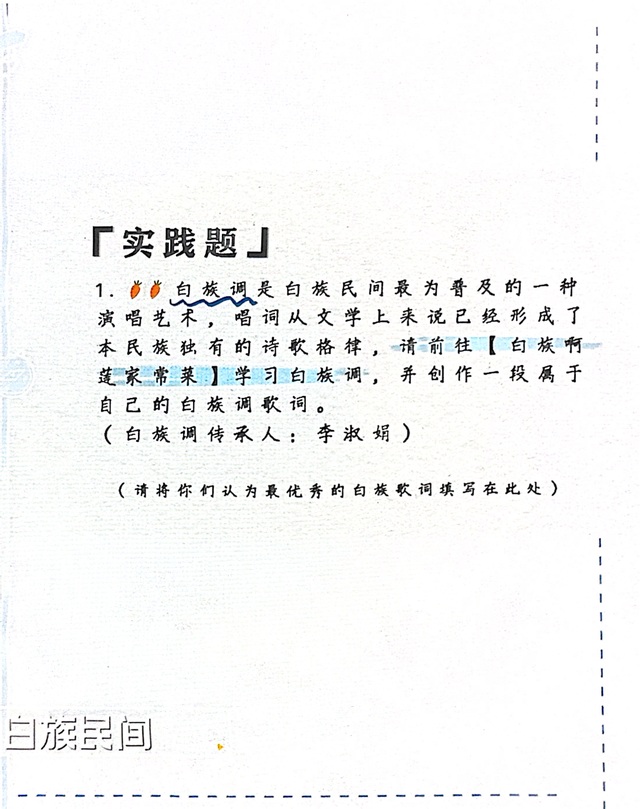 「实践题」
1. 白族调是白族民间最为普及的一种
演唱艺术，唱词从文学上来说已经形成了
本民族独有的诗歌格律，请前往【白族啊
莲家常菜】学习白族调，并创作一段属于
自己的白族调歌词。
（白族调传承人：李淑娟）
（请将你们认为最优秀的白族歌词填写在此处）
白族民间